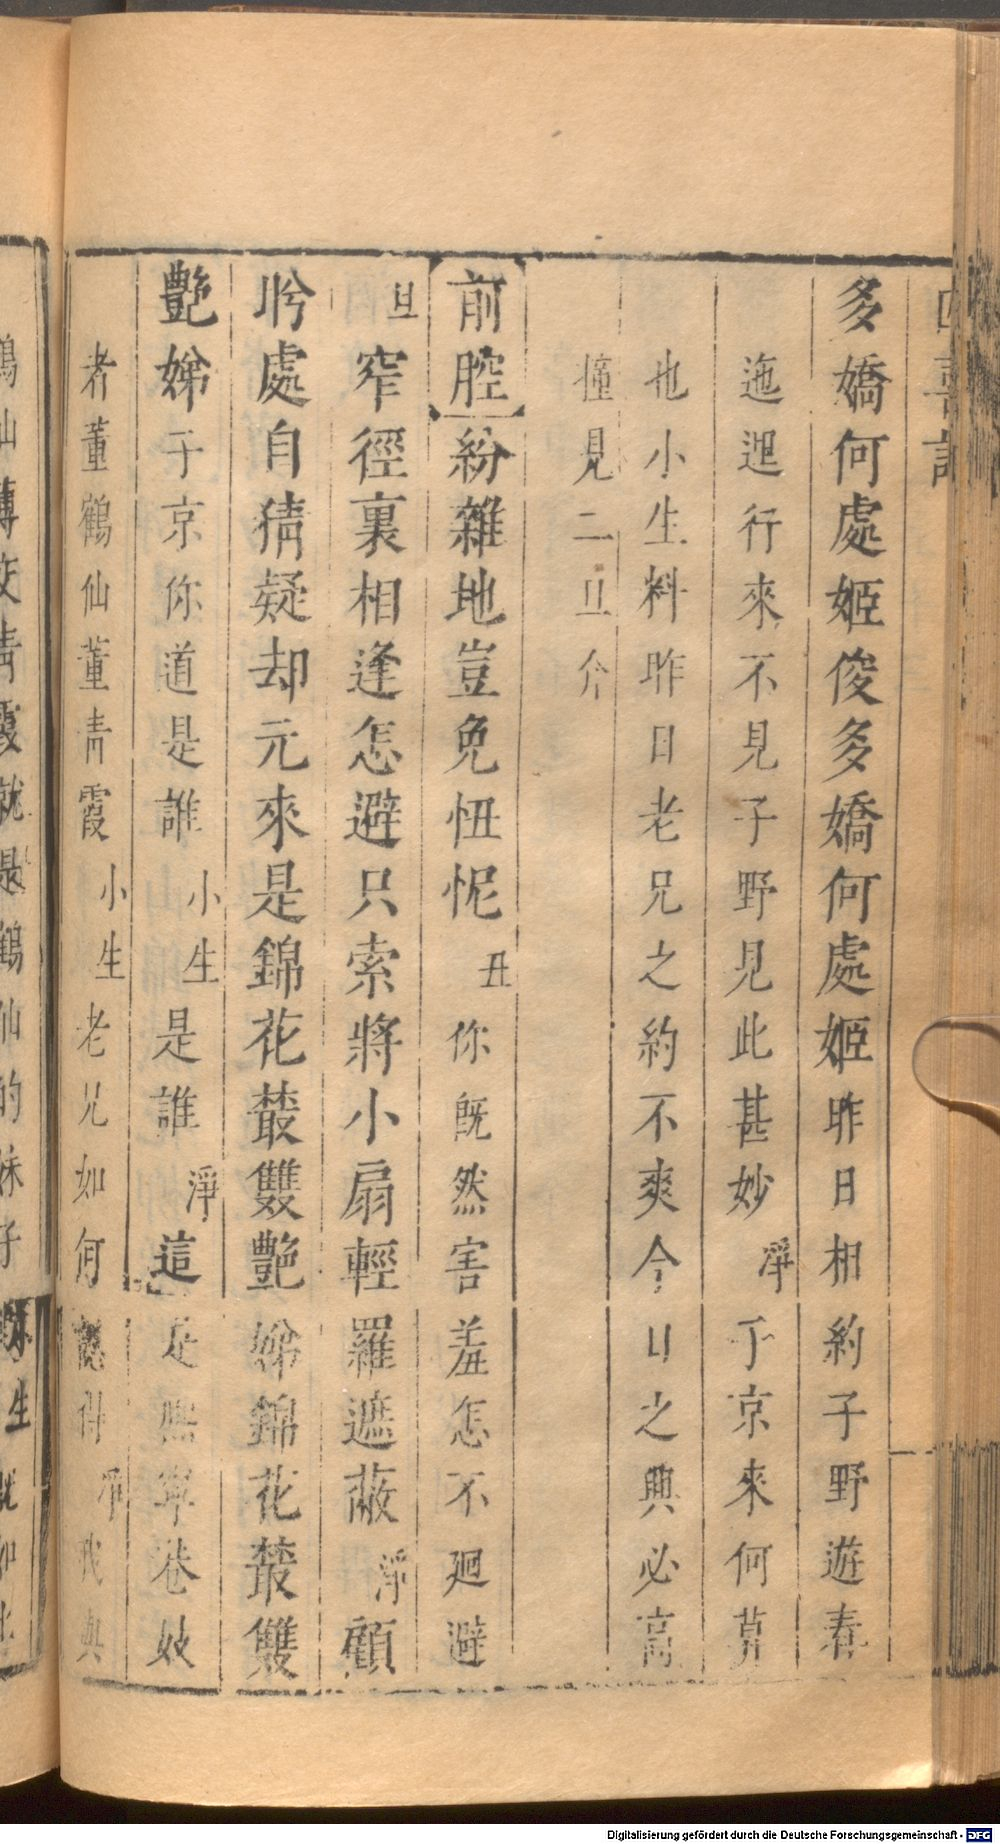 四喜記
多嬌何處姬俊多嬌何處姬昨日相約子野遊春
迤𨓦行來不見子野見此甚妙淨子京來何莫
也小生料昨日老兄之約不爽今日之興必高
撞見二旦介
前腔紛雜地豈免忸怩丑你既然害羞怎不廻避
旦窄徑裏相逢怎避只索將小扇輕羅遮蔽淨顧
盻處自猜疑却元來是錦花叢雙艷娣錦花叢雙
艷娣子京你道是誰小生是誰淨這是無寧巷妓
者董鶴仙董青霞小生老兄如何認得淨我與
Digitalisierung gefördert durch die Deutsche Forschungsgemeinschaft - DFG